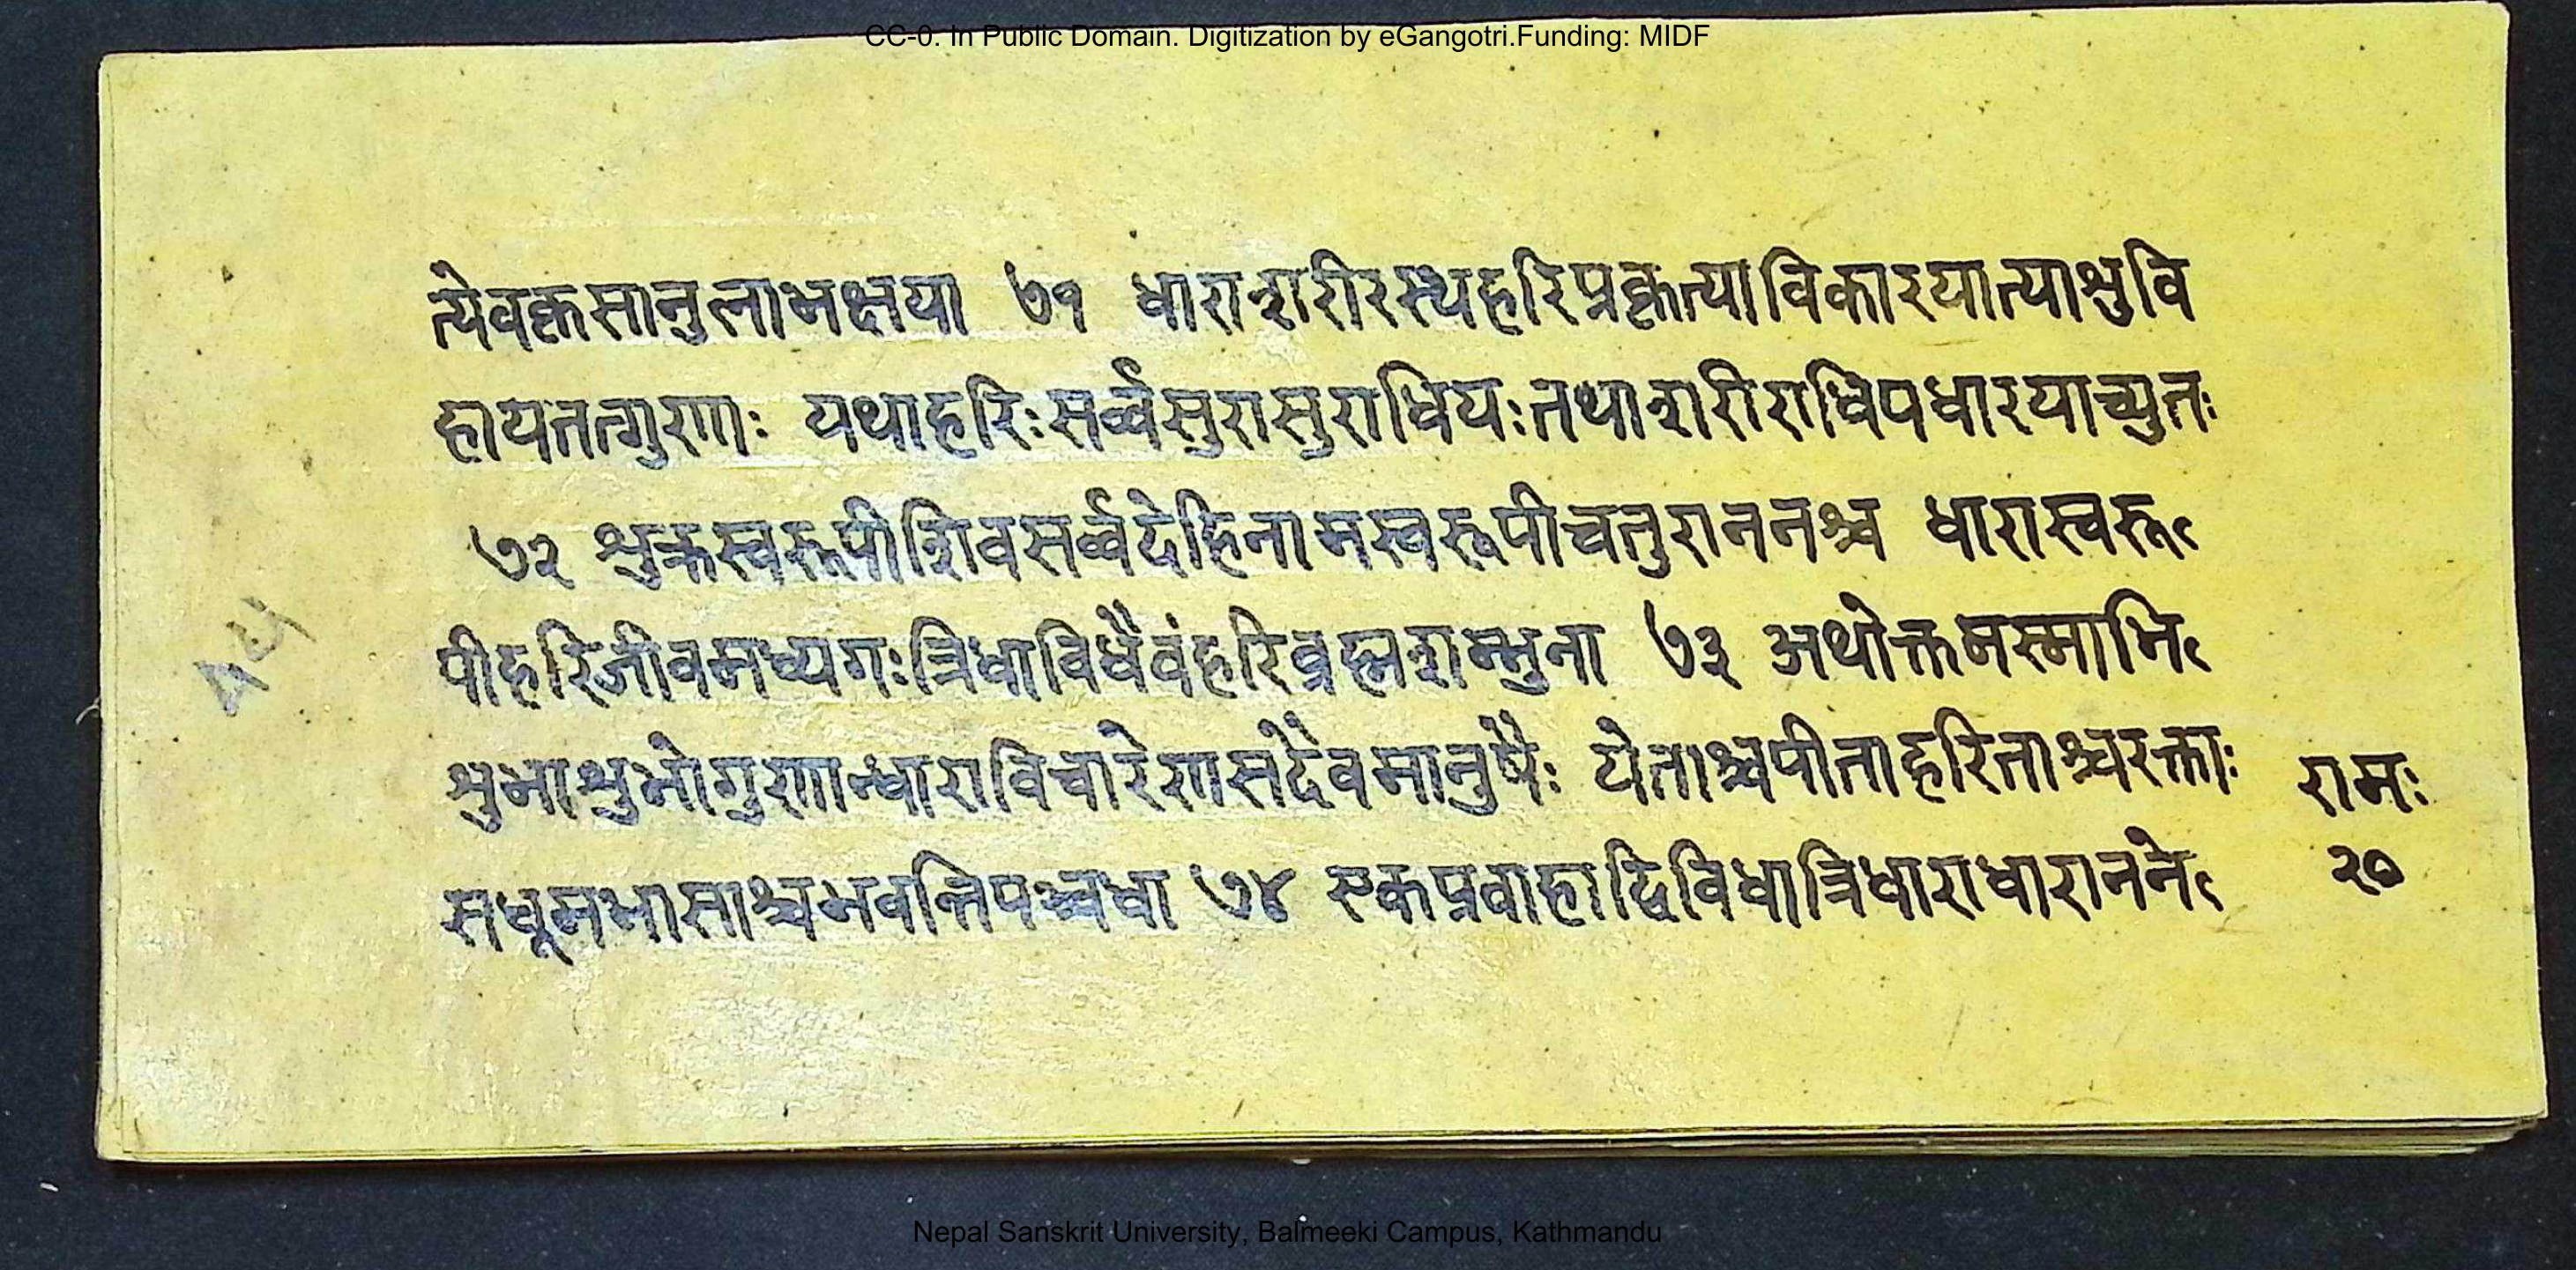 CC-0. In Public Domain. Digitization by eGangotri.Funding: MIDF
त्येवकृसानुलाभक्षया ७१ धाराशरीरस्थहरिप्रकृत्याविकारयात्याश्रुवि
हायतत्गुणाः यथाहरिःसर्व्वसुरासुराधियःतथाशरीराधिपधारयाच्युतः
७२ श्रुक्रस्वरूपीशिवसर्व्वदेहिनामस्वरूपीचतुराननश्च धारास्वरू
पीहरिजीवमध्यगःत्रिधाविधैवंहरिब्रह्मशम्भुना ७३ अथोक्तमस्माभि
श्रुभाश्रुभोगुणान्धाराविचारेणसदैवमानुषैः येताश्चपीताहरिताश्चरक्ताः
सधूमभासाश्चभवन्तिपञ्चधा ७४ एकप्रवाहाद्विविधात्रिधाराधारानने
रामः
२०
Nepal Sanskrit University, Balmeeki Campus, Kathmandu